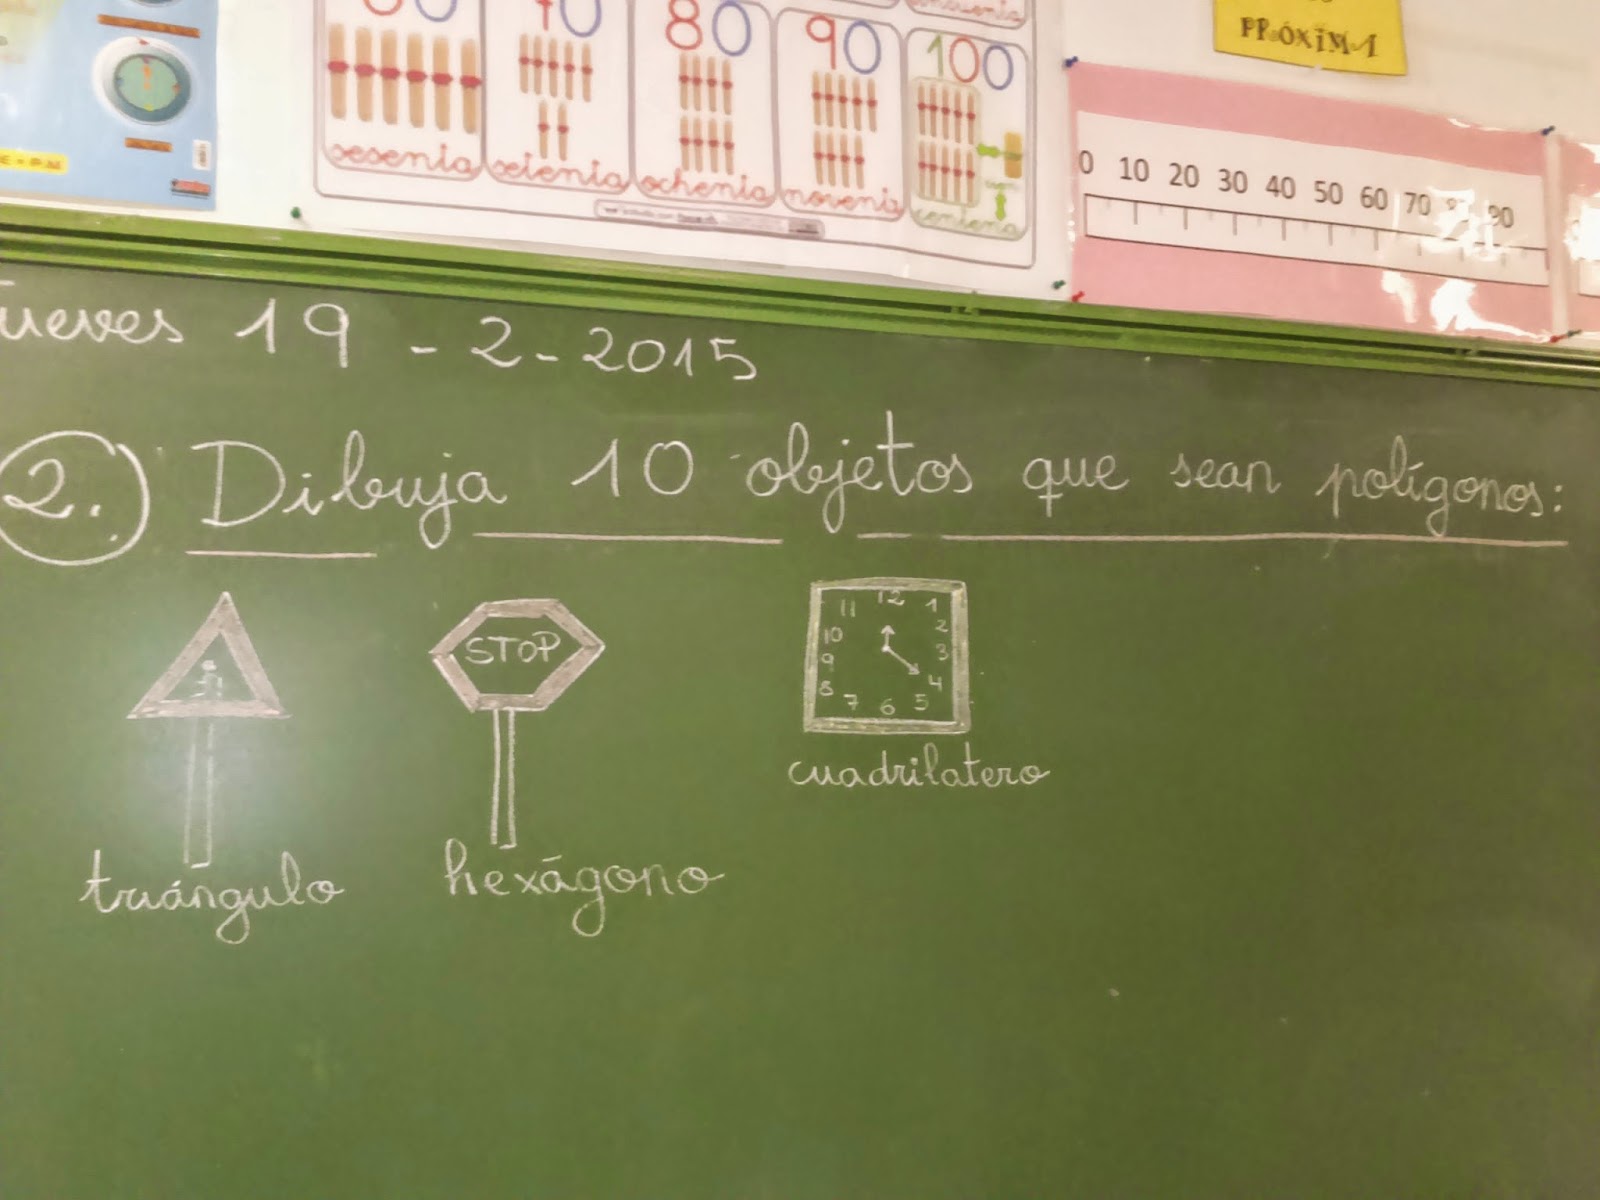 PRÓXIMA
80 90 100
sesenta setenta ochenta noventa centena
0 10 20 30 40 50 60 70 90
Jueves 19-2-2015
2. Dibuja 10 objetos que sean polígonos:
STOP
12
11 1
10 2
9 3
8 4
7 6 5
triángulo hexágono cuadrilatero